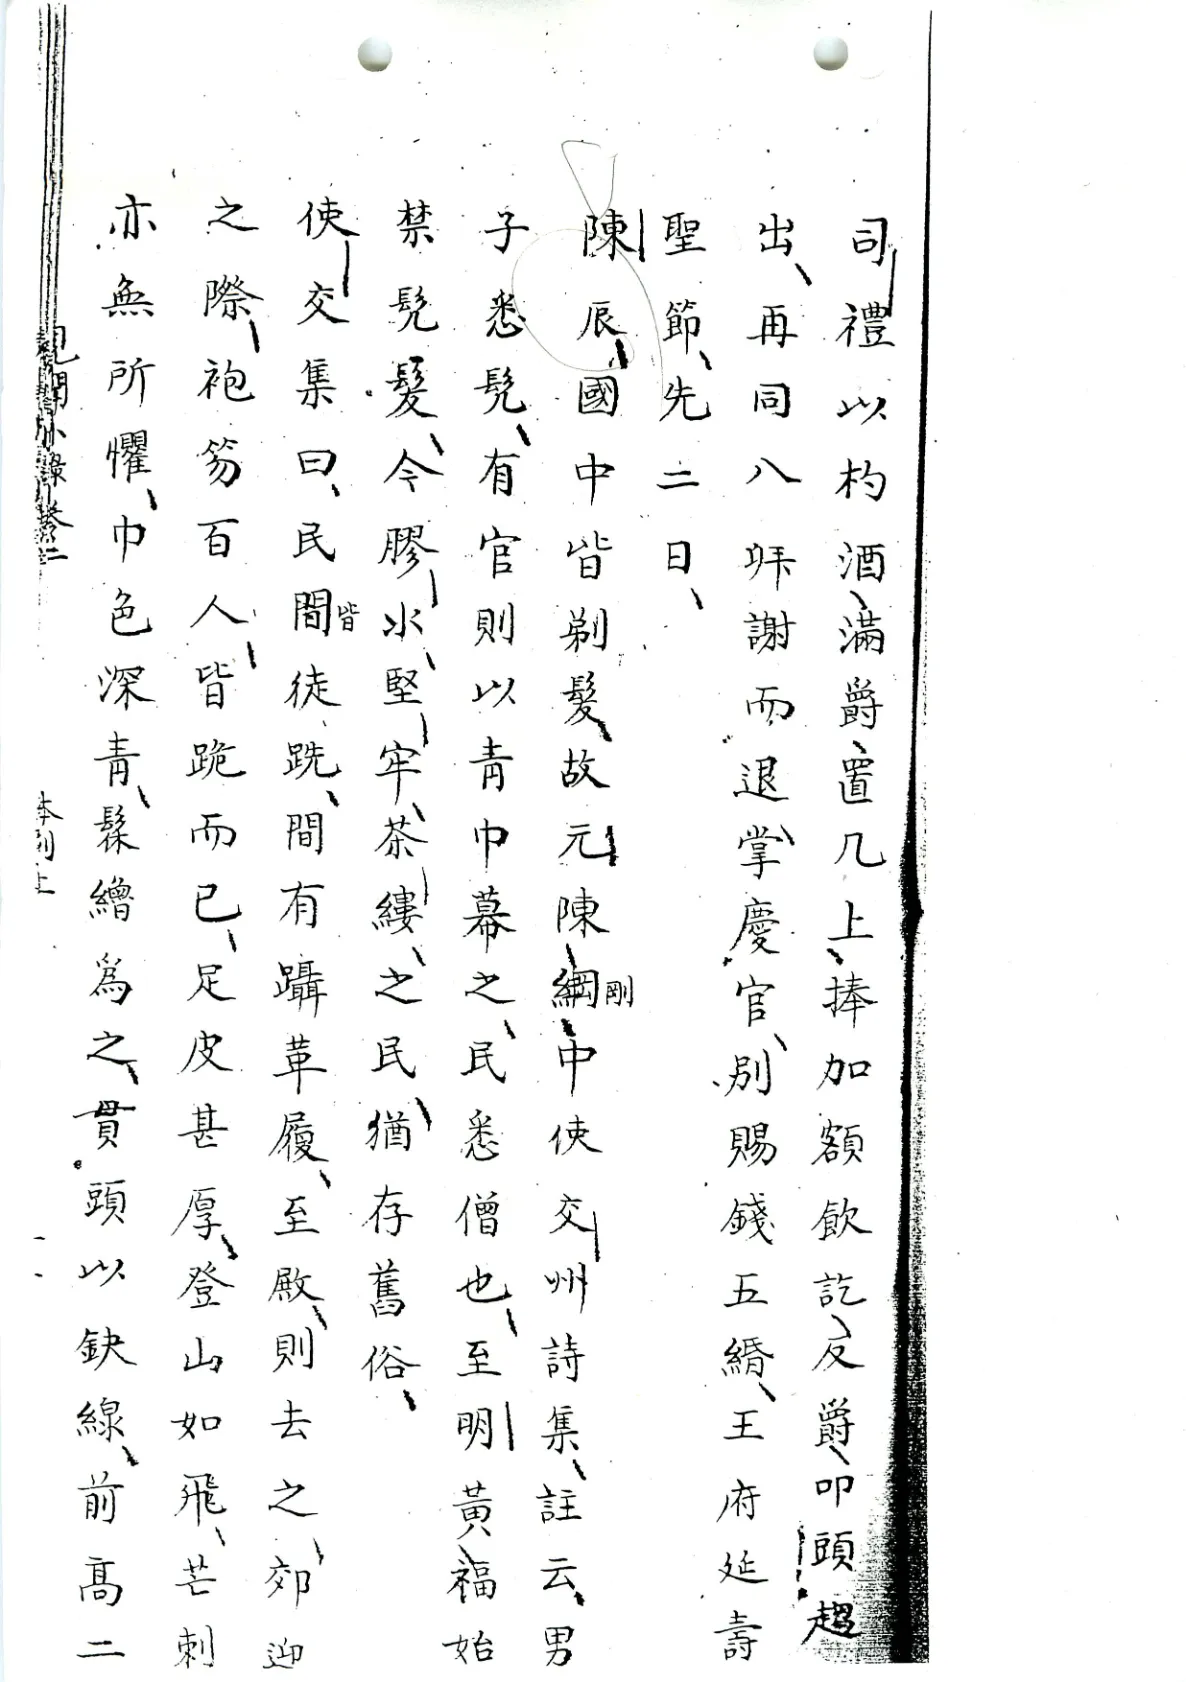 司禮以杓酒滿爵置几上捧加額飲訖反爵叩頭趨
出再同八拜謝而退掌慶官別賜錢五緡王府延壽
聖節先二日
陳辰國中皆剃髮故元陳綱剛中使交州詩集註云男
子悉髡有官則以青巾冪之民悉僧也至明黃福始
禁髡髮今膠水堅牢茶縷之民猶存舊俗
使交集曰民間皆徒跣間有躡革履至殿則去之郊迎
之際袍笏百人皆跪而已足皮甚厚登山如飛芒刺
亦無所懼巾色深青髹繒爲之貫頭以鈌線前高二
見聞小錄卷二
本刻上